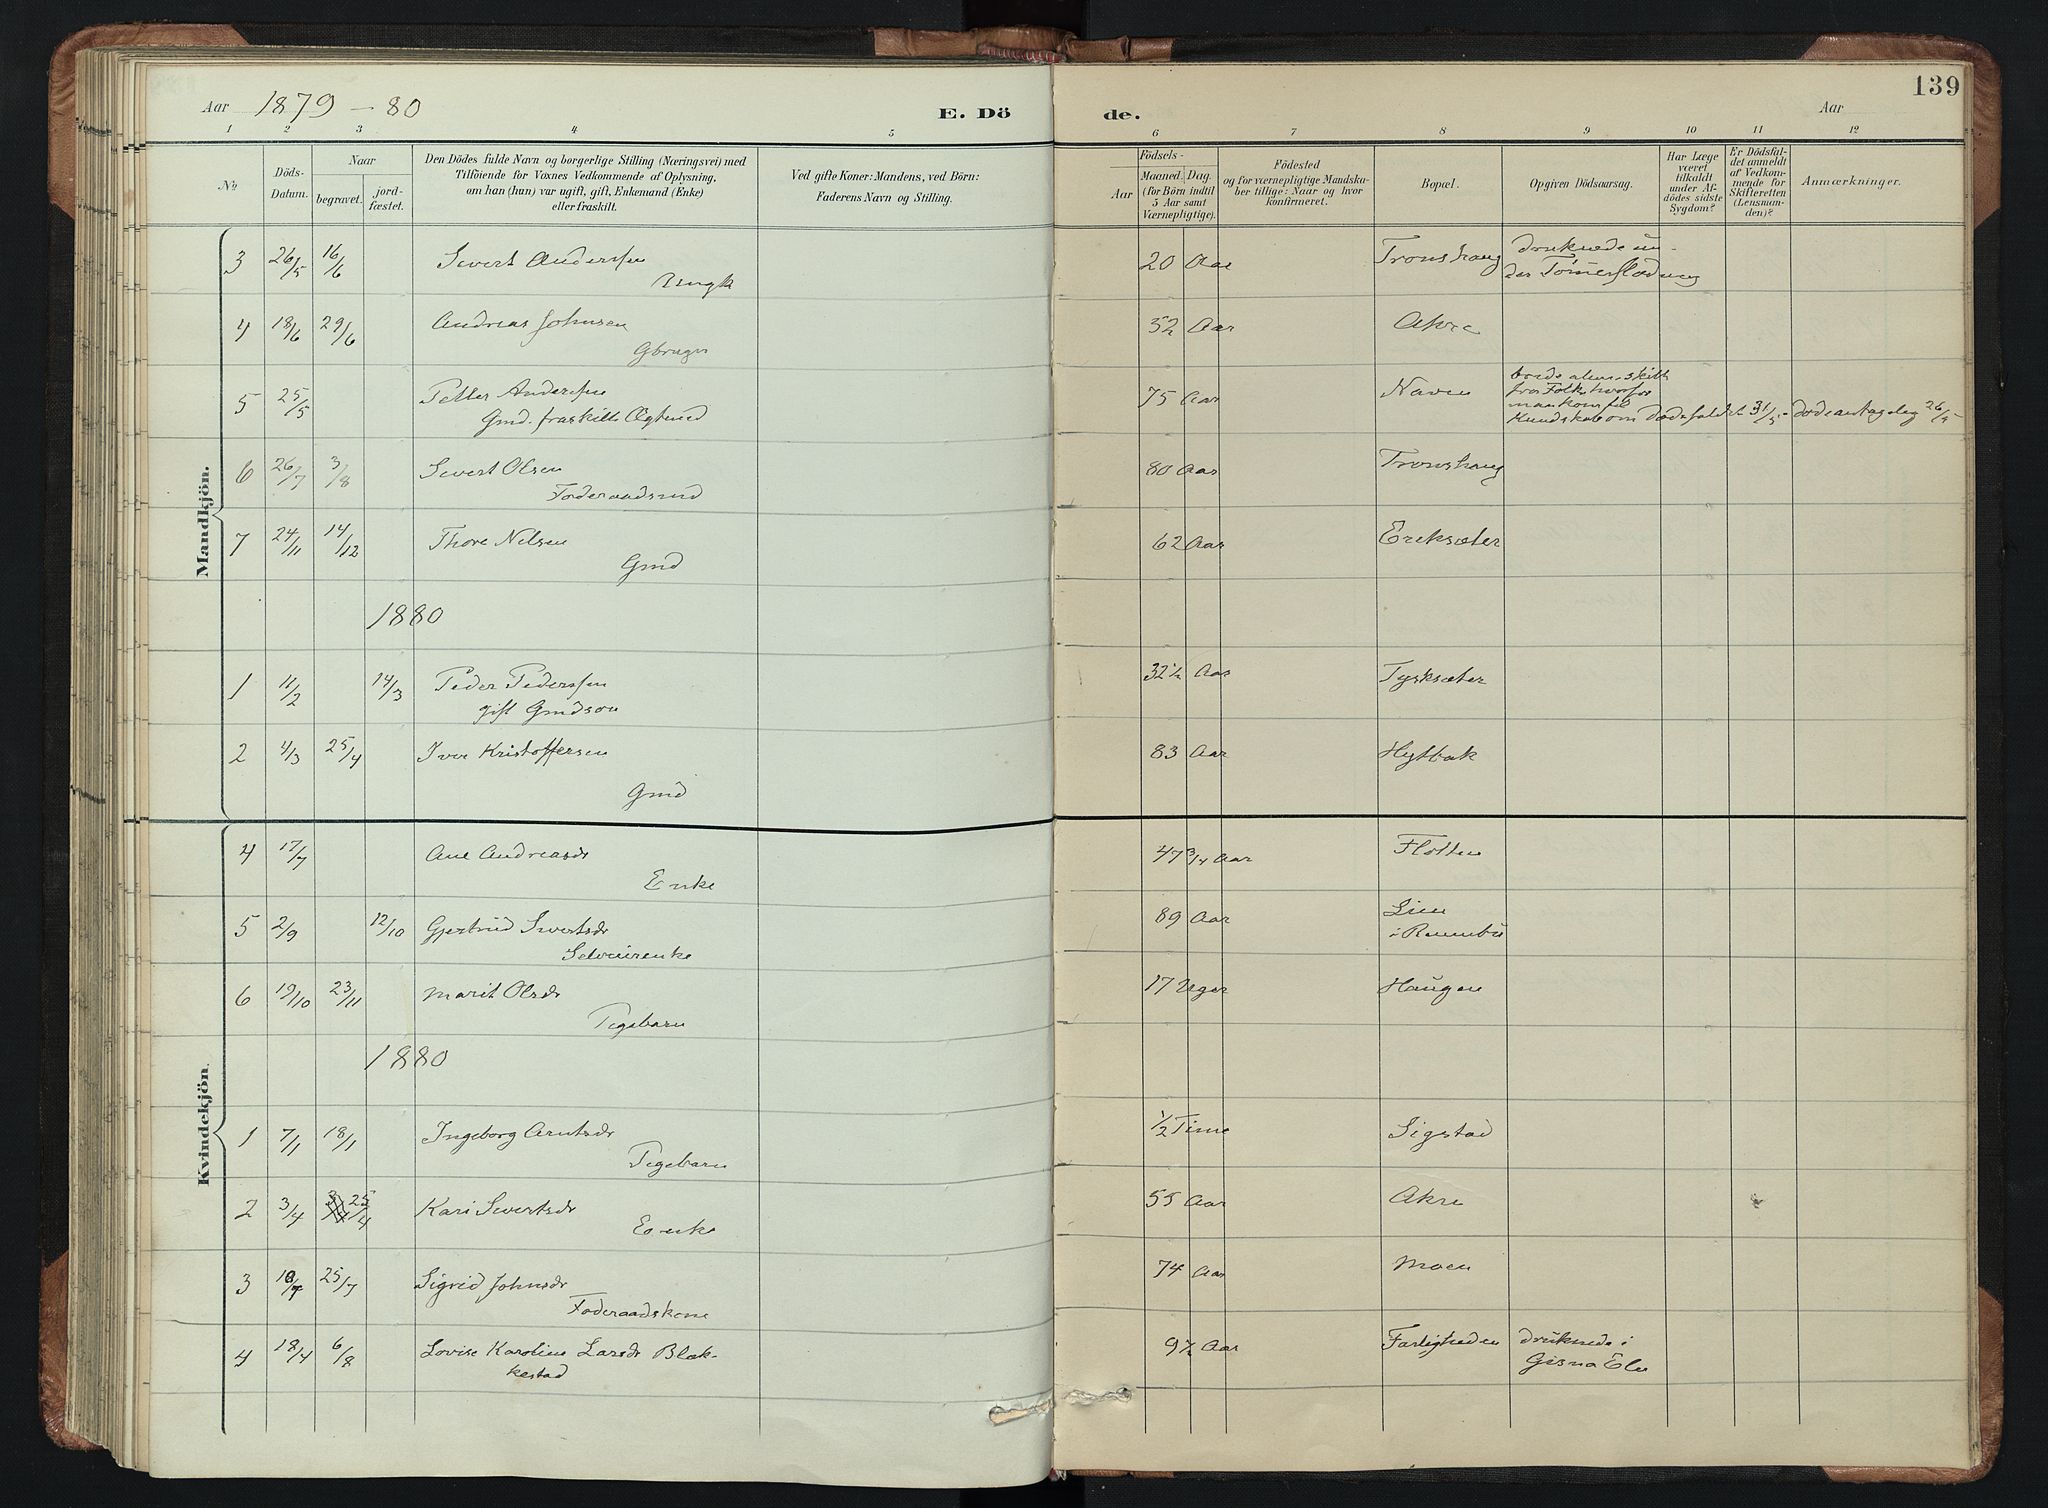 Aar 1879 - 80
E. Dö
de.
Aar
139
1 2 3 4 5 6 7 8 9 10 11 12
No
Döds-
Datum.
Naar
begravet.
jord-
fæstet.
Den Dödes fulde Navn og borgerlige Stilling (Næringsvei) med
Tilföiende for Voxnes Vedkommende af Oplysning,
om han (hun) var ugift, gift, Enkemand (Enke)
eller fraskilt.
Ved gifte Koner: Mandens, ved Börn:
Faderens Navn og Stilling.
Födsels-
Aar
Maaned. Dag.
(for Börn indtil
5 Aar samt
Værnepligtige).
Födested
og for værnepligtige Mandska-
ber tillige: Naar og hvor
konfirmeret.
Bopæl.
Opgiven Dödsaarsag.
Har Læge
været
tilkaldt
under Af-
dödes sidste
Sygdom?
Er Dödsfal-
det anmeldt
af Vedkom-
mende for
Skifteretten
(Lensman-
den)?
Anmærkninger.
Mandkjön.
3 26/5 16/6 Sivert Anderssen 20 Aar Tronshaug druknede un-
Ungk der Tømerflødning
4 18/6 29/6 Andreas Johnsen 52 Aar Akre
Gbruger
5 25/5 Petter Anderssen 75 Aar Naven
Gmd. fraskilt Ægtemd
boede alene skilt
fra Folk hvorfor
man kom til
Kundskab om Dødsfaldet 31/5 - døde antagelig 26/5
6 26/7 3/8 Sivert Olsen 80 Aar Tronshaug
Foderaadsmd
7 24/11 14/12 Thore Nilsen 62 Aar Ereksæter
Gmd
1880
1 11/2 14/3 Peder Pederssen 32 1/2 Aar Tysksæter
gift Gmdsøn
2 4/3 25/4 Iver Kristoffersen 83 Aar Hytbak
Gmd
Kvindekjön.
4 17/7 Ane Andreasdr 47 3/4 Aar Flotten
Enke
5 2/9 12/10 Gjertrud Sivertsdr 89 Aar Lien
Selveierenke i Rennebu
6 19/10 23/11 Marit Olsdr 17 Uger Haugen
Pigebarn
1880
1 7/1 18/1 Ingeborg Arntsdr 1/2 Time Sigstad
Pigebarn
2 3/4 25/4 Kari Sivertsdr 55 Aar Akre
Enke
3 25/7 Sigrid Johnsdr 74 Aar Moen
Foderaadskone
4 18/4 6/8 Lovise Karoline Larsdr Blak- 9 1/2 Aar Farligheden druknede i
kestad Gisna Elv